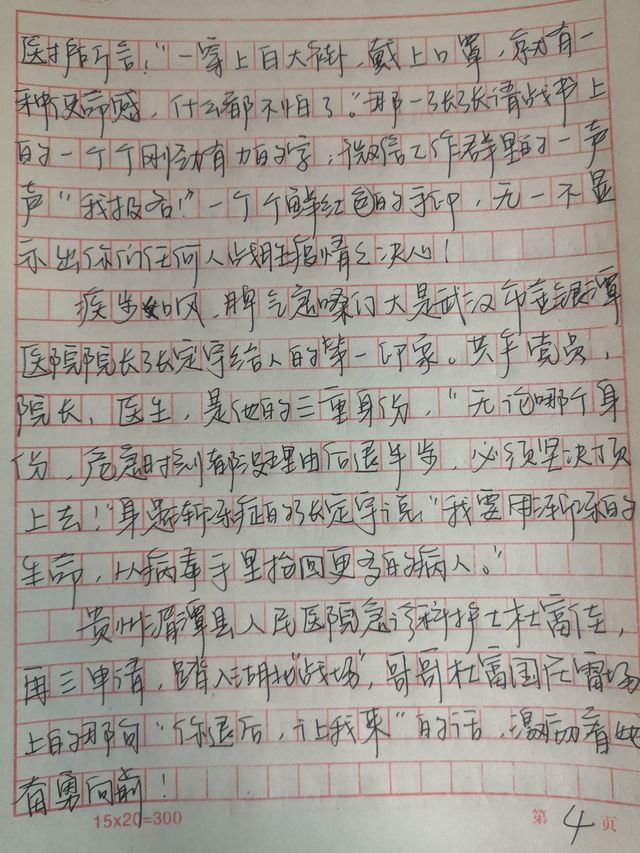 医护所言！"一穿上白大褂，戴上口罩，就有一
种使命感，什么都不怕了。"那一张张请战书上
的一个个刚劲有力的字，微信工作群里的一声
声"我报名！"一个个鲜红色的手印，无一不显
示出你们任何人战胜疫情之决心！
疾步如风，脾气急嗓门大是武汉市金银潭
医院院长张定宇给人的第一印象。共产党员，
院长，医生，是他的三重身份，"无论哪个身
份，危急时刻都没理由后退半步，必须坚决顶
上去！"身患渐冻症的张定宇说"我要用渐冻的
生命，从病毒手里抢回更多的病人。"
贵州湄潭县人民医院急诊科护士杜富佳，
再三申请，踏入湖北"战场"，哥哥杜富国在雷场
上的那句"你退后，让我来"的话，激励着她
奋勇向前！
15x20=300
第 4 页